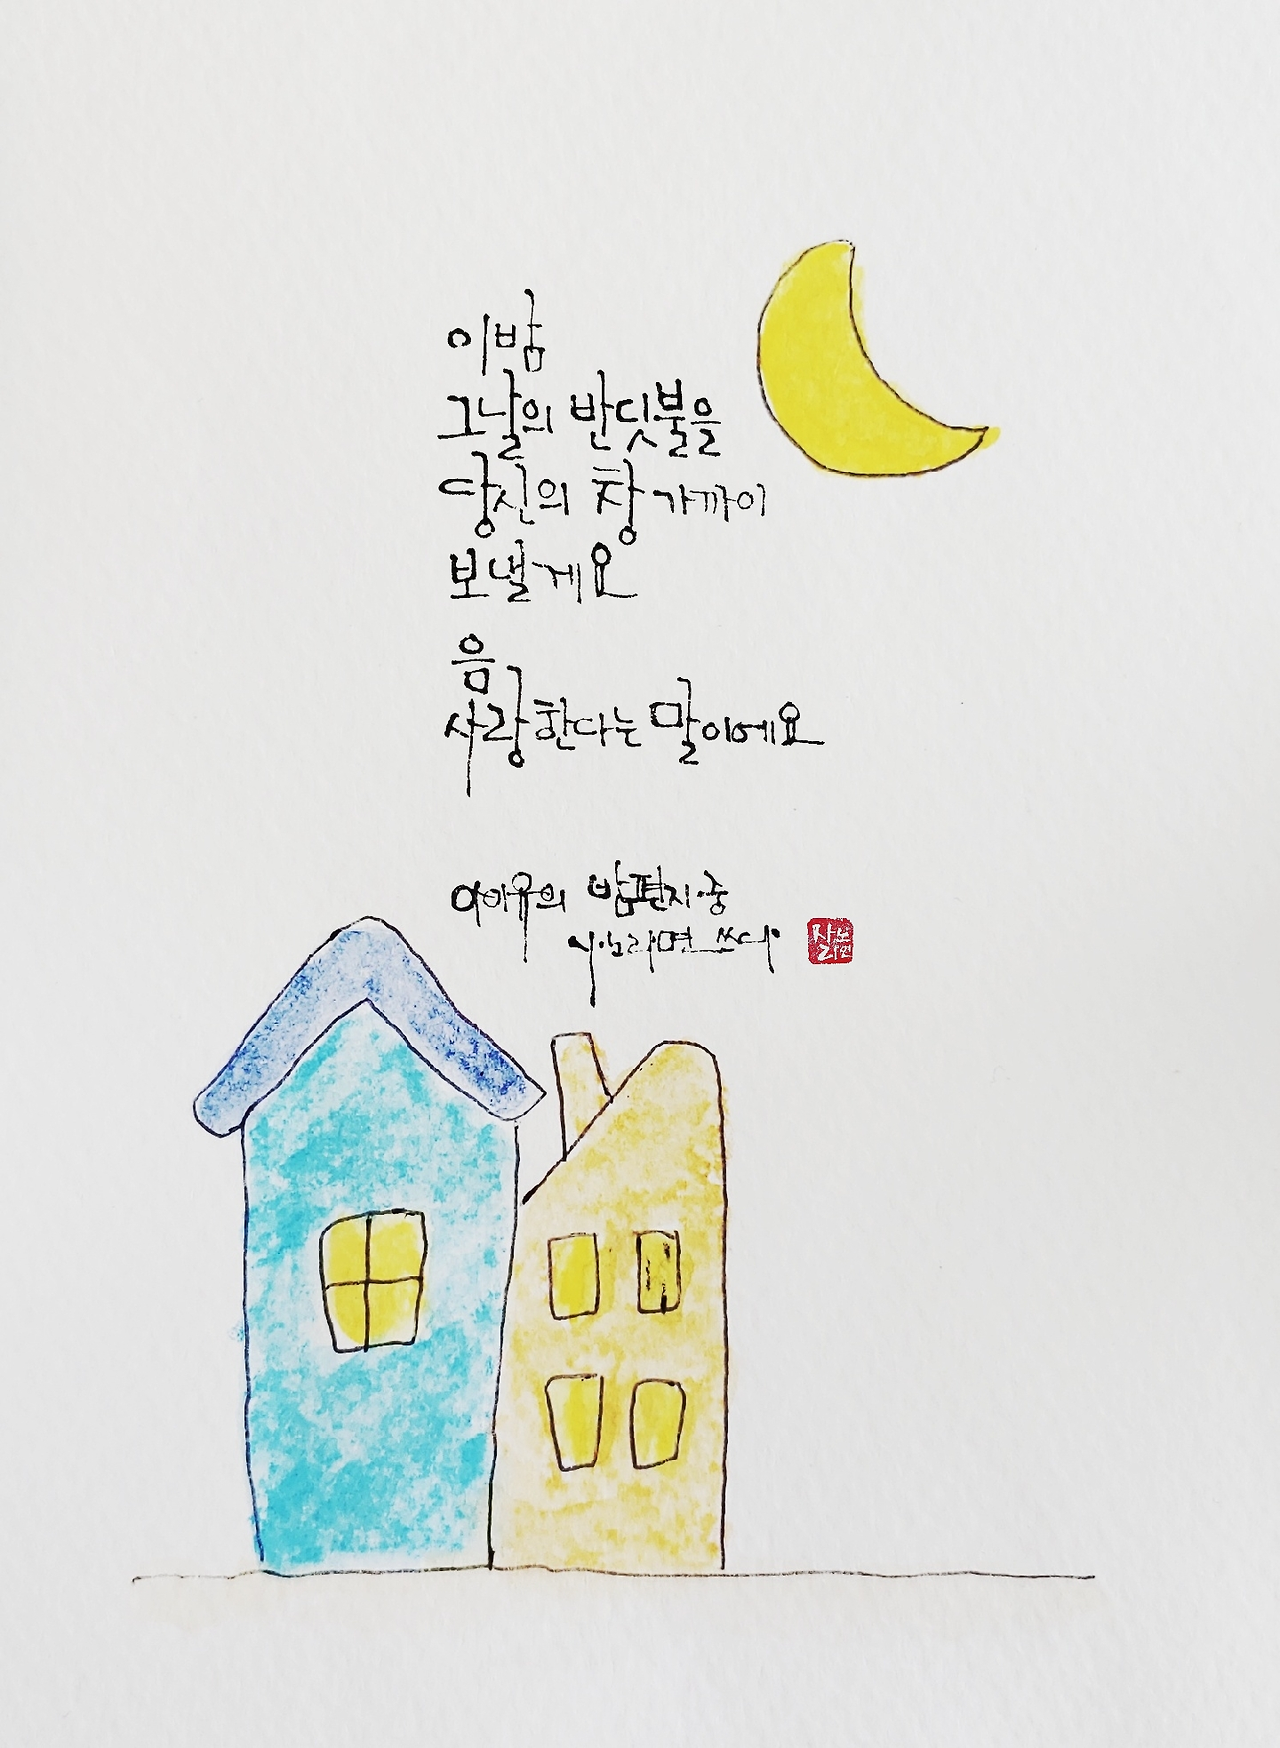 이 밤
그날의 반딧불을
당신의 창 가까이
보낼게요
음
사랑한다는 말이에요
아이유의 밤편지 중
쓰다